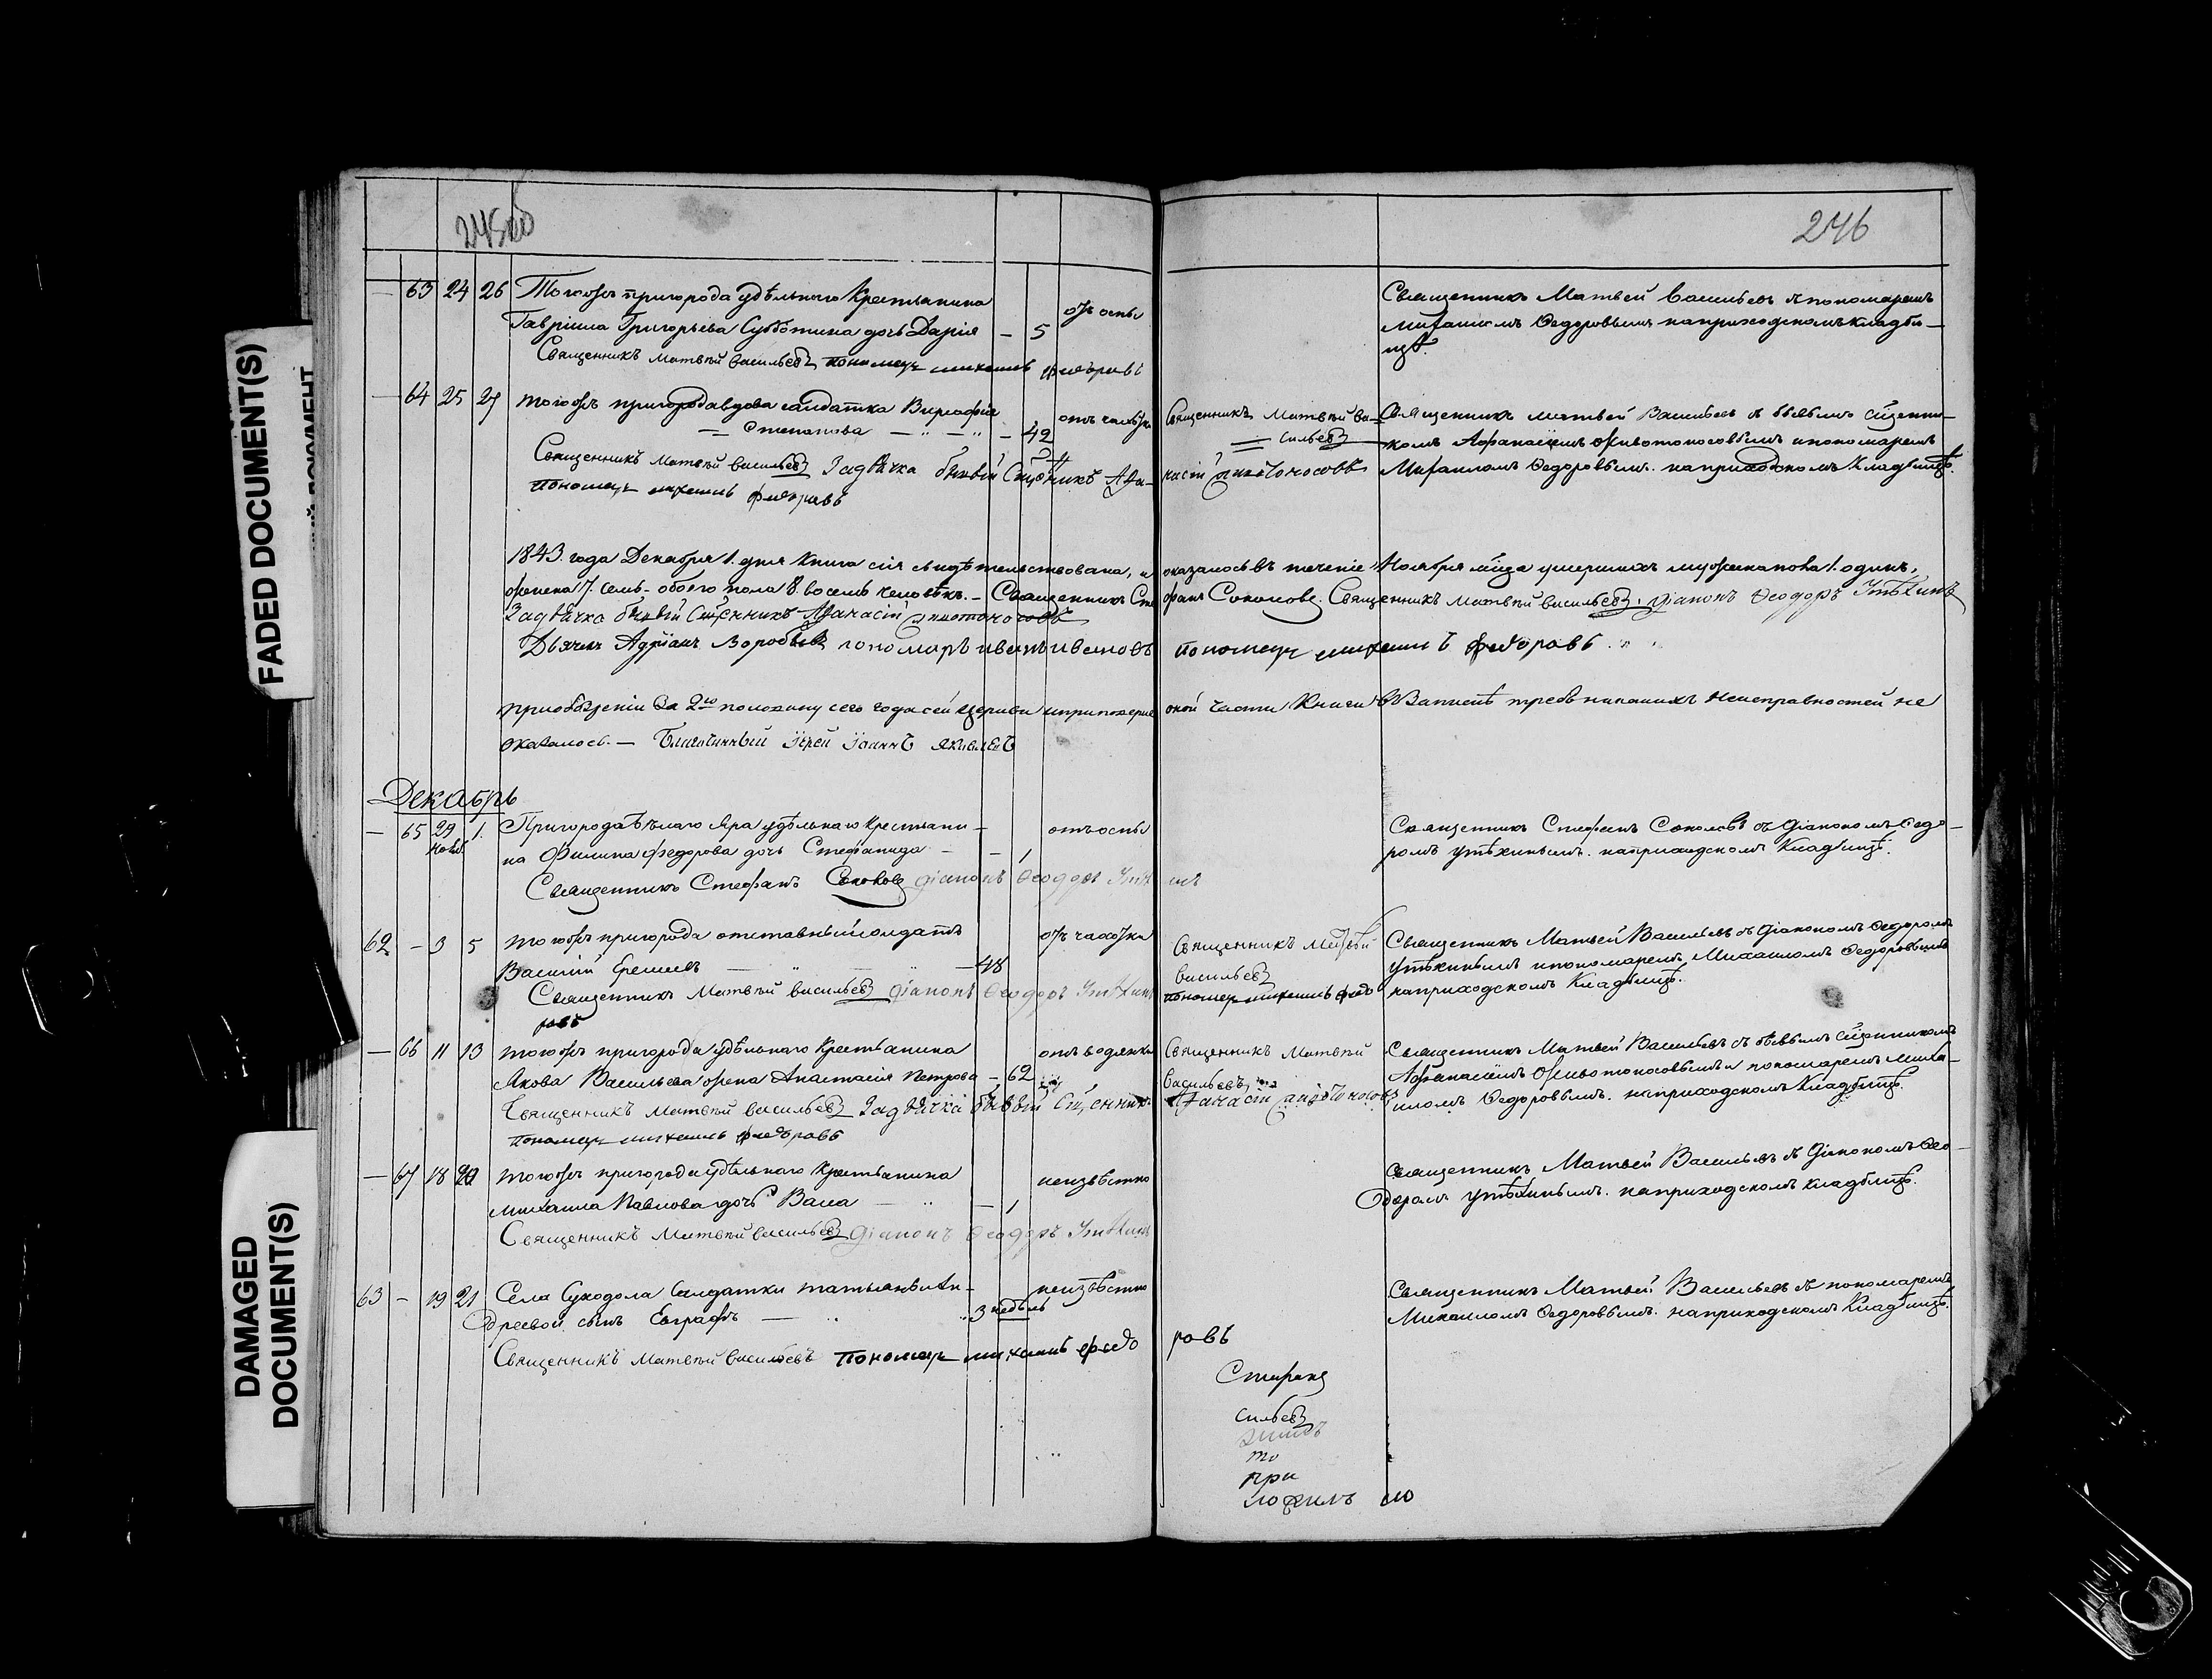 FADED DOCUMENT(S)
DAMAGED DOCUMENT(S)
245об
246
— 63 24 26 Тогожъ пригорода удѣльнаго Крестьянина
Гавріила Григорьева Субботина дочь Дарія — 5 отъ оспы
Священникъ Матвѣй Васильевъ пономарь михаилъ федоравъ
Священникъ Матвей Васильевъ съ пономаремъ
Михаиломъ Ѳедоровымъ на приходскомъ кладби-
щѣ.
— 64 25 27 Тогожъ пригорода вдова салдатка
Степанова — 42 отъ чахотки
Священникъ Матвѣй Васильевъ За дьячка бывый Сщенникъ Афа-
насій Животоносовъ
пономарь михаилъ федоравъ
Священникъ Матвѣй Ва-
сильевъ
Священникъ Матвей Васильевъ съ бывымъ сщенни-
комъ Афанасіемъ Животоносовымъ и пономаремъ
Михаиломъ Ѳедоровымъ. на приходскомъ кладбищѣ.
1843. года Декабря 1. дня Книга сія свидѣтельствована, и оказалось въ теченіе Ноября мца умершихъ мужеска пола 1. одинъ,
женска 7. семь. обоего пола 8. восемь человѣкъ. — Священникъ Стефанъ Соколовъ. Священникъ Матвѣй Васильевъ. Діаконъ Ѳеодоръ Утѣхинъ
За дьячка бывый Сщенникъ Афанасій Животоносовъ
Дьячекъ Адріанъ Воробьевъ пономарь иванъ ивановъ пономарь михаилъ федоравъ
При обозрѣніи за 2ю половину сего года сей церкви и приповѣрке оной части Книги въ Записѣ требъ никакихъ неисправностей не
оказалось. — Благочинный Іерей Іоаннъ Яковлевъ
Декабрь
— 65 29 Нояб. 1. Пригорода Бѣлаго Яра удѣльнаго Крестьяни-
на Филипа Федорова дочь Стефанида — 1 отъ оспы
Священникъ Стефанъ Соколовъ Діаконъ Ѳеодоръ Утѣхинъ
Священникъ Стефанъ Соколовъ съ Діакономъ Ѳедо-
ромъ Утѣхинымъ. на приходскомъ Кладбищѣ.
62 — 3 5 Тогожъ пригорода отставный солдатъ
Василій — 48 отъ чахотки
Священникъ Матвѣй Васильевъ Діаконъ Ѳеодоръ Утѣхинъ
Священникъ Матвѣй
Васильевъ
пономарь михаилъ федо
равъ
Священникъ Матвей Васильевъ съ Діакономъ Ѳедоромъ
Утѣхинымъ и пономаремъ Михаиломъ Ѳедоровымъ
на приходскомъ Кладбищѣ.
— 66 11 13 Тогожъ пригорода удѣльнаго Крестьянина
Якова Васильева жена Анастасія Петрова — 62 отъ водянки
Священникъ Матвѣй Васильевъ За дьячка бывый Сщенникъ
Афанасій Животоносовъ
пономарь михаилъ федоравъ
Священникъ Матвѣй
Васильевъ
Священникъ Матвей Васильевъ съ бывымъ сщенникомъ
Афанасіемъ Животоносовымъ и пономаремъ Миха-
иломъ Ѳедоровымъ. на приходскомъ Кладбищѣ.
— 67 18 20 Тогожъ пригорода удѣльнаго Крестьянина
Михаила Павлова дочь Васа — 1 неизвѣстно
Священникъ Матвѣй Васильевъ Діаконъ Ѳеодоръ Утѣхинъ
Священникъ Матвей Васильевъ съ Діакономъ Ѳео-
доромъ Утѣхинымъ. на приходскомъ Кладбищѣ.
63 — 19 21 Села Суходола Салдатки Татьяны Ан-
дреевой сынъ Евграфъ 3 недѣль неизвѣстно
Священникъ Матвѣй Васильевъ пономарь михаилъ федо
равъ
Священникъ Матвей Васильевъ съ пономаремъ
Михаиломъ Ѳедоровымъ. на приходскомъ Кладбищѣ.
Стефанъ
сильевъ
то
при
ложилъ